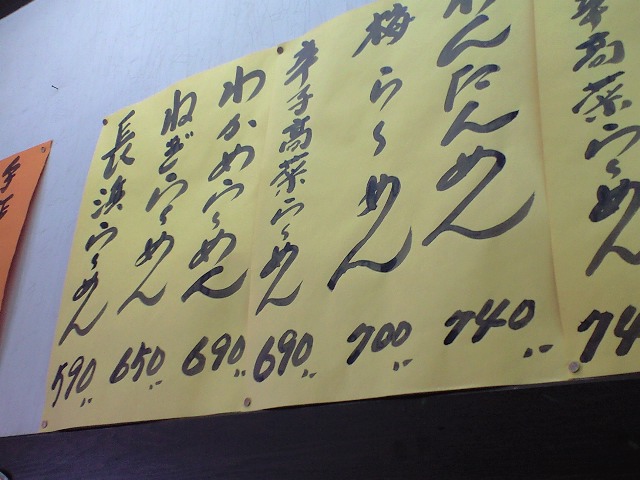 高菜らーめん 74
わんたんめん 740〃
梅らーめん 700〃
辛子高菜らーめん 690〃
わかめらーめん 690〃
ねぎらーめん 650〃
長浜らーめん 590〃